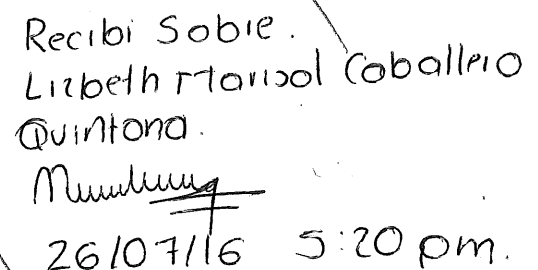 Recibi Sobre.
Lizbeth Marisol Caballero
Quintana.
26/07/16 5:20 pm.